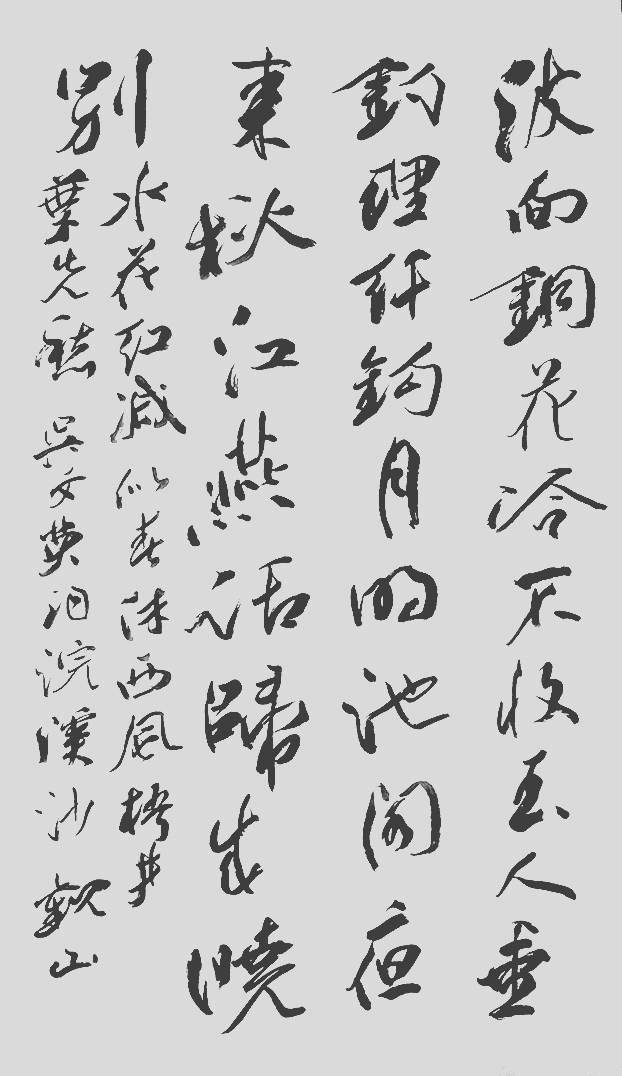 波面銅花冷不收玉人垂
釣理纤鈎月明池閣夜
來秋江燕話歸成曉
別
水花紅減似春休西風梧井
葉先愁 吳文英詞浣溪沙 觀山